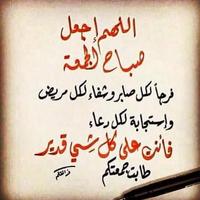 اللهم إجعل
صباح الجمعة
فرجاً لكل صابر وشفاء لكل مريض
واستجابة لكل دعاء
فأنت على كل شيء قدير
طابت جمعتكم